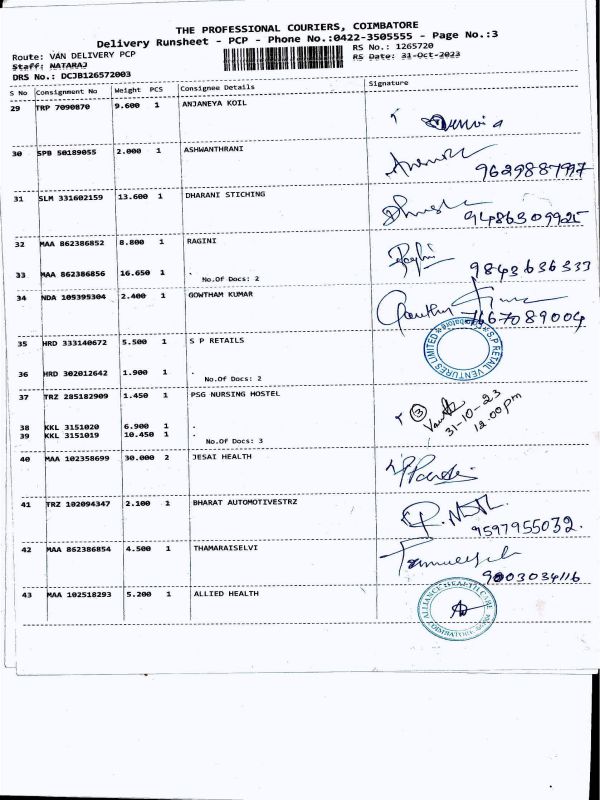 THE PROFESSIONAL COURIERS, COIMBATORE
Delivery Runsheet - PCP - Phone No.:0422-3505555 - Page No.:3
Route: VAN DELIVERY PCP RS No.: 1265720
Staff: NATARAJ RS Date: 31-Oct-2023
DRS No.: DCJB126572003
S No Consignment No Weight PCS Consignee Details Signature
29 TRP 7090870 9.600 1 ANJANEYA KOIL
30 SPB 50189055 2.000 1 ASHWANTHRANI
31 SLM 331602159 13.600 1 DHARANI STICHING
9486309925
32 MAA 862386852 8.800 1 RAGINI
33 MAA 862386856 16.650 1 .
No.Of Docs: 2
9843636333
34 NDA 105395304 2.400 1 GOWTHAM KUMAR
7667089004
35 HRD 333140672 5.500 1 S P RETAILS
S.P RETAIL VENTURES LIMITED
36 HRD 302012642 1.900 1 .
No.Of Docs: 2
37 TRZ 285182909 1.450 1 PSG NURSING HOSTEL
3
31-10-23
12:00pm
38 KKL 3151020 6.900 1 .
39 KKL 3151019 10.450 1 .
No.Of Docs: 3
40 MAA 102358699 30.000 2 JESAI HEALTH
41 TRZ 102094347 2.100 1 BHARAT AUTOMOTIVESTRZ
9597955032.
42 MAA 862386854 4.500 1 THAMARAISELVI
9003034116
43 MAA 102518293 5.200 1 ALLIED HEALTH
ALLIANCE HEALTH CARE